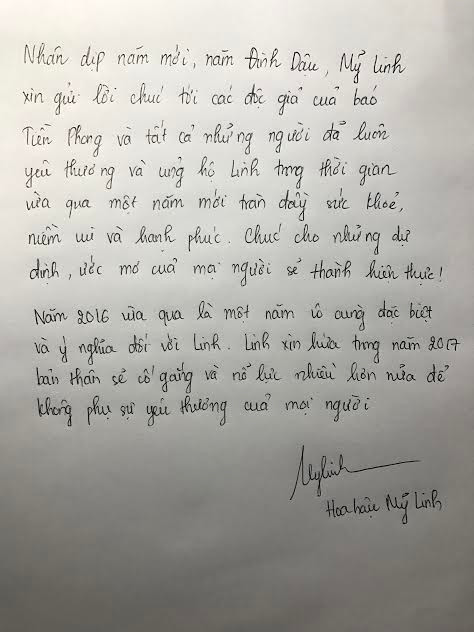 Nhân dịp năm mới, năm Đinh Dậu, Mỹ Linh
xin gửi lời chúc tới các độc giả của báo
Tiền Phong và tất cả những người đã luôn
yêu thương và ủng hộ Linh trong thời gian
vừa qua một năm mới tràn đầy sức khoẻ,
niềm vui và hạnh phúc. Chúc cho những dự
định, ước mơ của mọi người sẽ thành hiện thực!
Năm 2016 vừa qua là một năm vô cùng đặc biệt
và ý nghĩa đối với Linh. Linh xin hứa trong năm 2017
bản thân sẽ cố gắng và nỗ lực nhiều hơn nữa để
không phụ sự yêu thương của mọi người
Mylinh
Hoa hậu Mỹ Linh